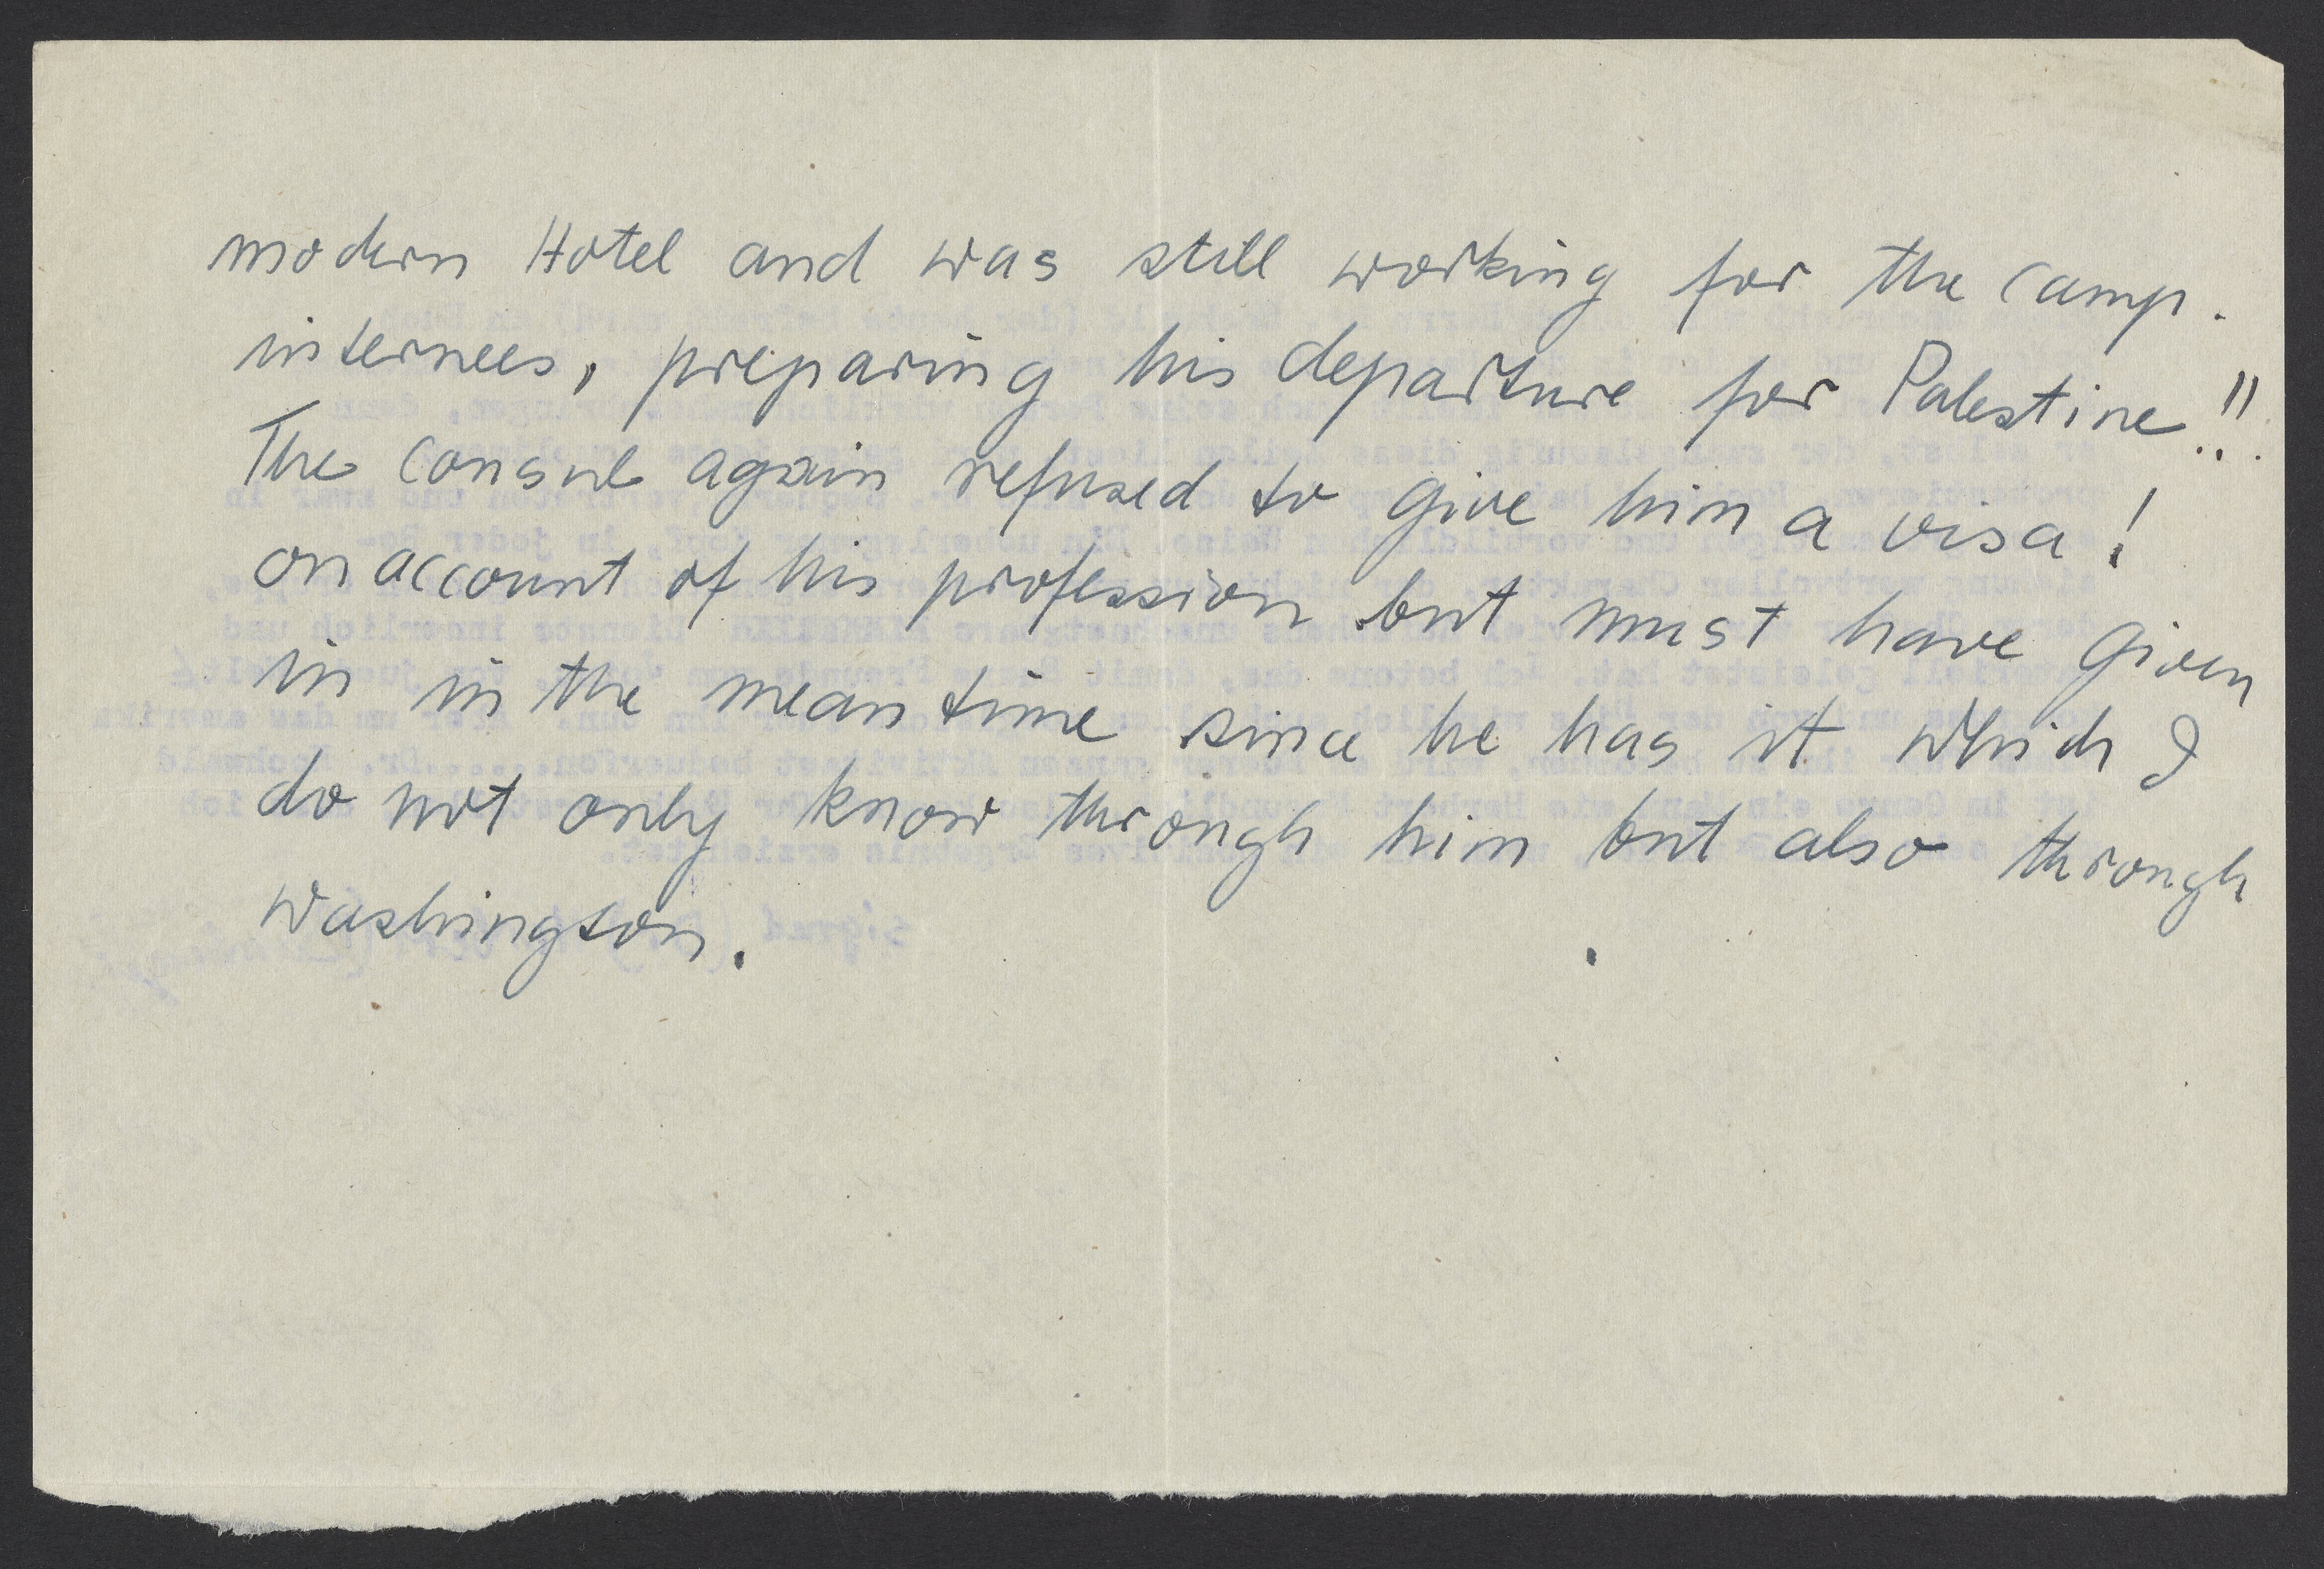 modern Hotel and was still working for the camp.
internees, preparing his departure for Palestine!!
The Consul again refused to give him a visa!
on account of his profession but must have given
in in the meantime since he has it which I
do not only know through him but also through
Washington.